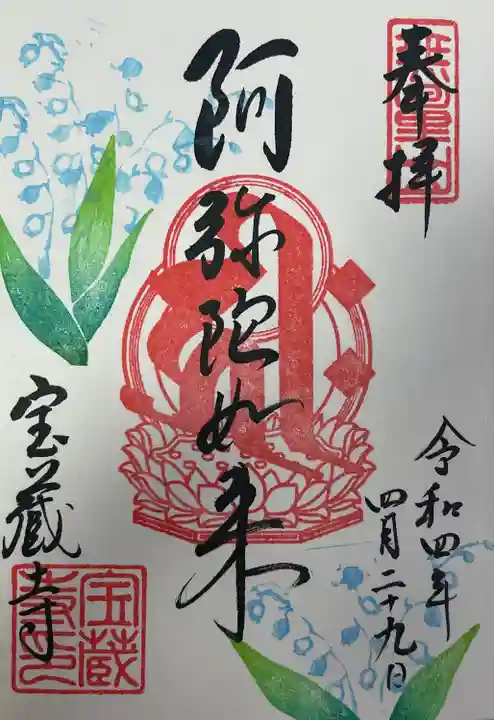 奉拝
阿弥陀如来
令和四年
四月二十九日
宝蔵寺
宝蔵
寺印